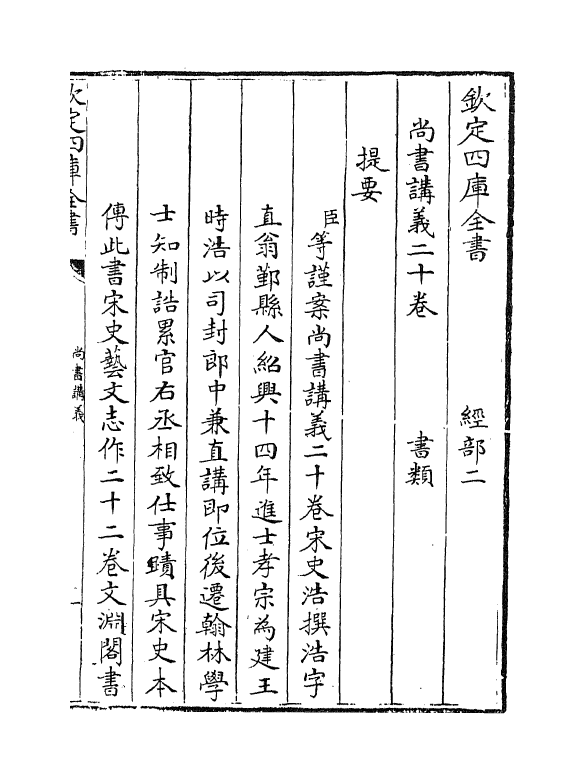 欽定四庫全書　經部二
尚書講義二十卷　書類
提要
臣等謹案尚書講義二十卷宋史浩撰浩字
直翁鄞縣人紹興十四年進士孝宗為建王
時浩以司封郎中兼直講即位後遷翰林學
士知制誥累官右丞相致仕事蹟具宋史本
傳此書宋史藝文志作二十二卷文淵閣書
欽定四庫全書
尚書講義
一